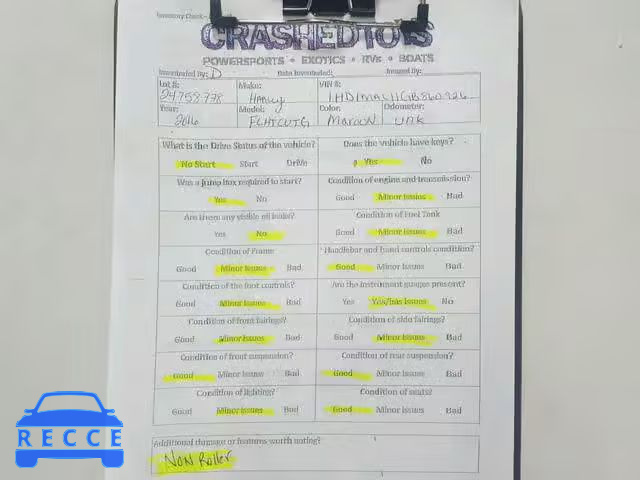 Inventory Check-
CRASHEDTOYS
POWERSPORTS • EXOTICS • RVs • BOATS
Inventoried By: D Date Inventoried: Issued By:
Lot #: Make: VIN #:
24758778 Harley
Year: Model: Color: Odometer:
2016 FLHTCUTG Maroon unk
What is the Drive Status of the vehicle? Does the vehicle have keys?
No Start Start Drive Yes No
Was a jump box required to start? Condition of engine and transmission?
Yes No Good Minor Issues Bad
Are there any visible oil leaks? Condition of Fuel Tank
Yes No Good Minor Issues Bad
Condition of Frame Handlebar and hand controls condition?
Good Minor Issues Bad Good Minor Issues Bad
Condition of the foot controls? Are the instrument gauges present?
Good Minor Issues Bad Yes Yes/has issues No
Condition of front fairings? Condition of side fairings?
Good Minor Issues Bad Good Minor Issues Bad
Condition of front suspension? Condition of rear suspension?
Good Minor Issues Bad Good Minor Issues Bad
Condition of lighting? Condition of seats?
Good Minor Issues Bad Good Minor Issues Bad
Additional damage or features worth noting?
Non Roller
RECCE